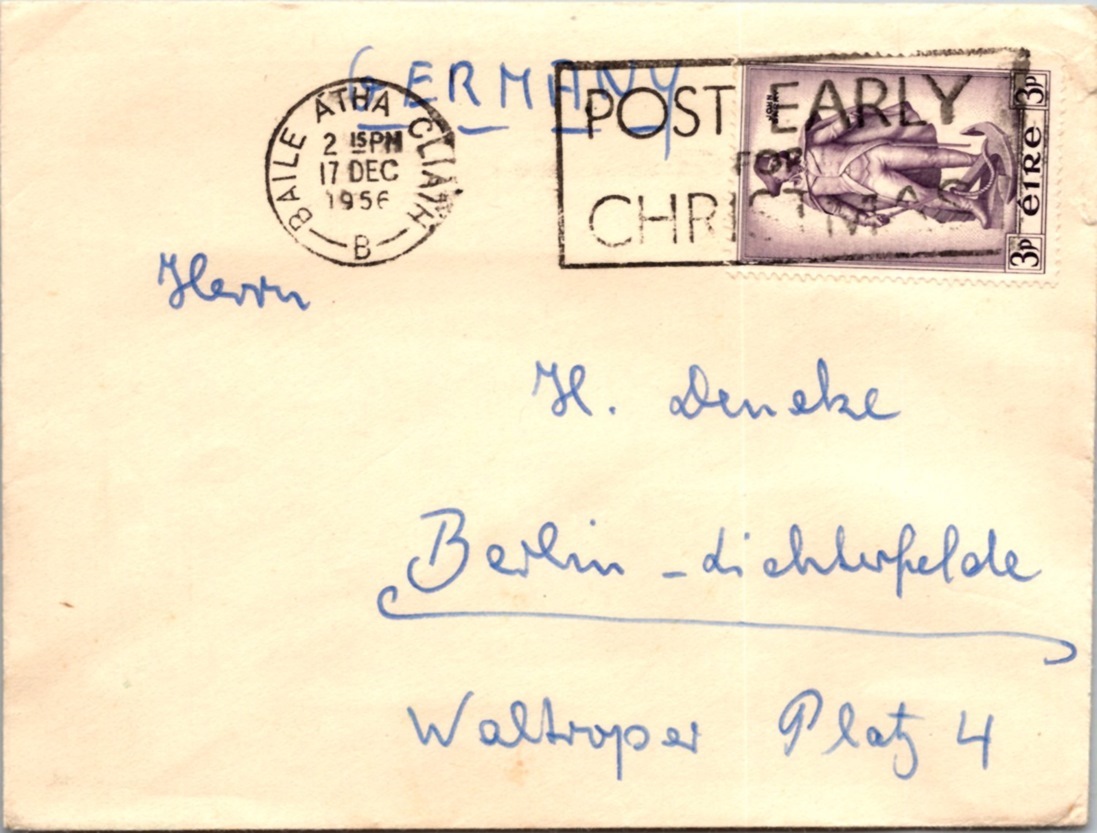 GERMANY
BAILE ÁTHA CLIATH
2 15PM
17 DEC
1956
B
POST EARLY
FOR
CHRISTMAS
JOHN BARRY
3p éire 3p
Herrn
H. Deneke
Berlin - Lichterfelde
Waltroper Platz 4